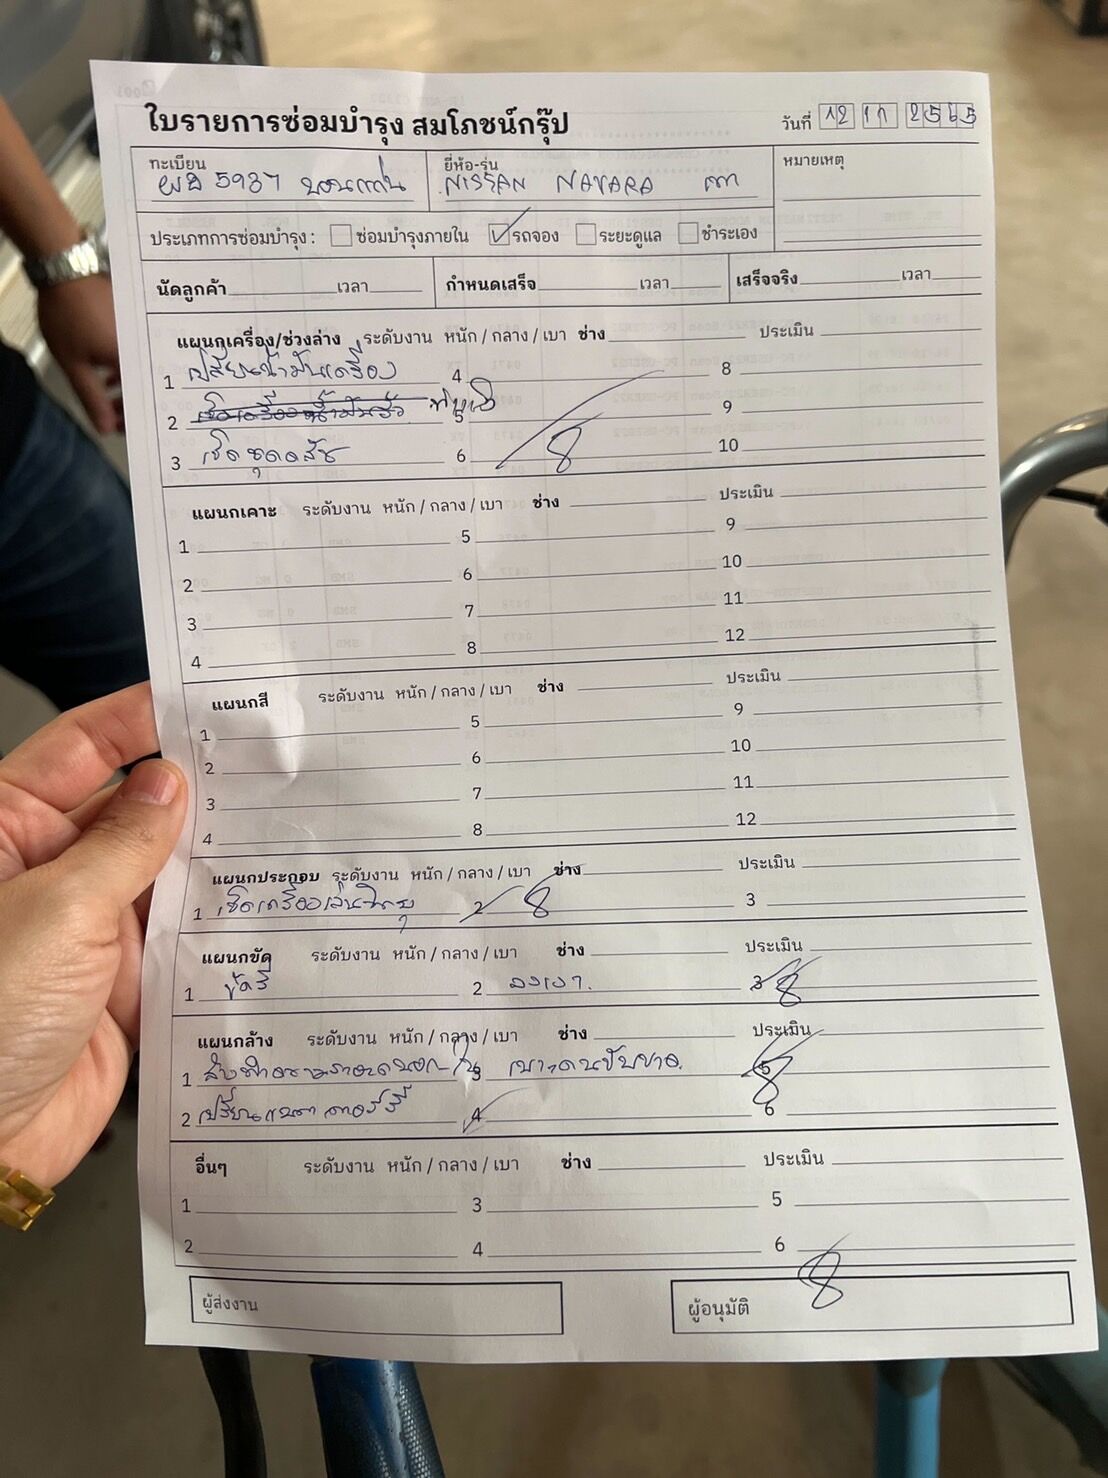 ใบรายการซ่อมบำรุง สมโภชน์กรุ๊ป
วันที่ 12 11 2565
ทะเบียน ผฉ 5937 ขอนแก่น
ยี่ห้อ-รุ่น NISSAN NAVARA เทา
หมายเหตุ
ประเภทการซ่อมบำรุง : ซ่อมบำรุงภายใน ✓ รถจอง ระยะดูแล ชำระเอง
นัดลูกค้า เวลา กำหนดเสร็จ เวลา เสร็จจริง เวลา
แผนกเครื่อง/ช่วงล่าง ระดับงาน หนัก / กลาง / เบา ช่าง ประเมิน
1 เปลี่ยนน้ำมันเครื่อง 4 8
2 5 9
3 เช็คชุดคลัช 6 10
แผนกเคาะ ระดับงาน หนัก / กลาง / เบา ช่าง ประเมิน
1 5 9
2 6 10
3 7 11
4 8 12
แผนกสี ระดับงาน หนัก / กลาง / เบา ช่าง ประเมิน
1 5 9
2 6 10
3 7 11
4 8 12
แผนกประกอบ ระดับงาน หนัก / กลาง / เบา ช่าง ประเมิน
1 เช็คเครื่องเล่นวิทยุ 2 3
แผนกขัด ระดับงาน หนัก / กลาง / เบา ช่าง ประเมิน
1 ขัดสี 2 ลงเงา. 3
แผนกล้าง ระดับงาน หนัก / กลาง / เบา ช่าง ประเมิน
1 3 เบาะคนขับขาด 5
2 เปลี่ยนแบตเตอรี่ 4 6
อื่นๆ ระดับงาน หนัก / กลาง / เบา ช่าง ประเมิน
1 3 5
2 4 6
ผู้ส่งงาน ผู้อนุมัติ